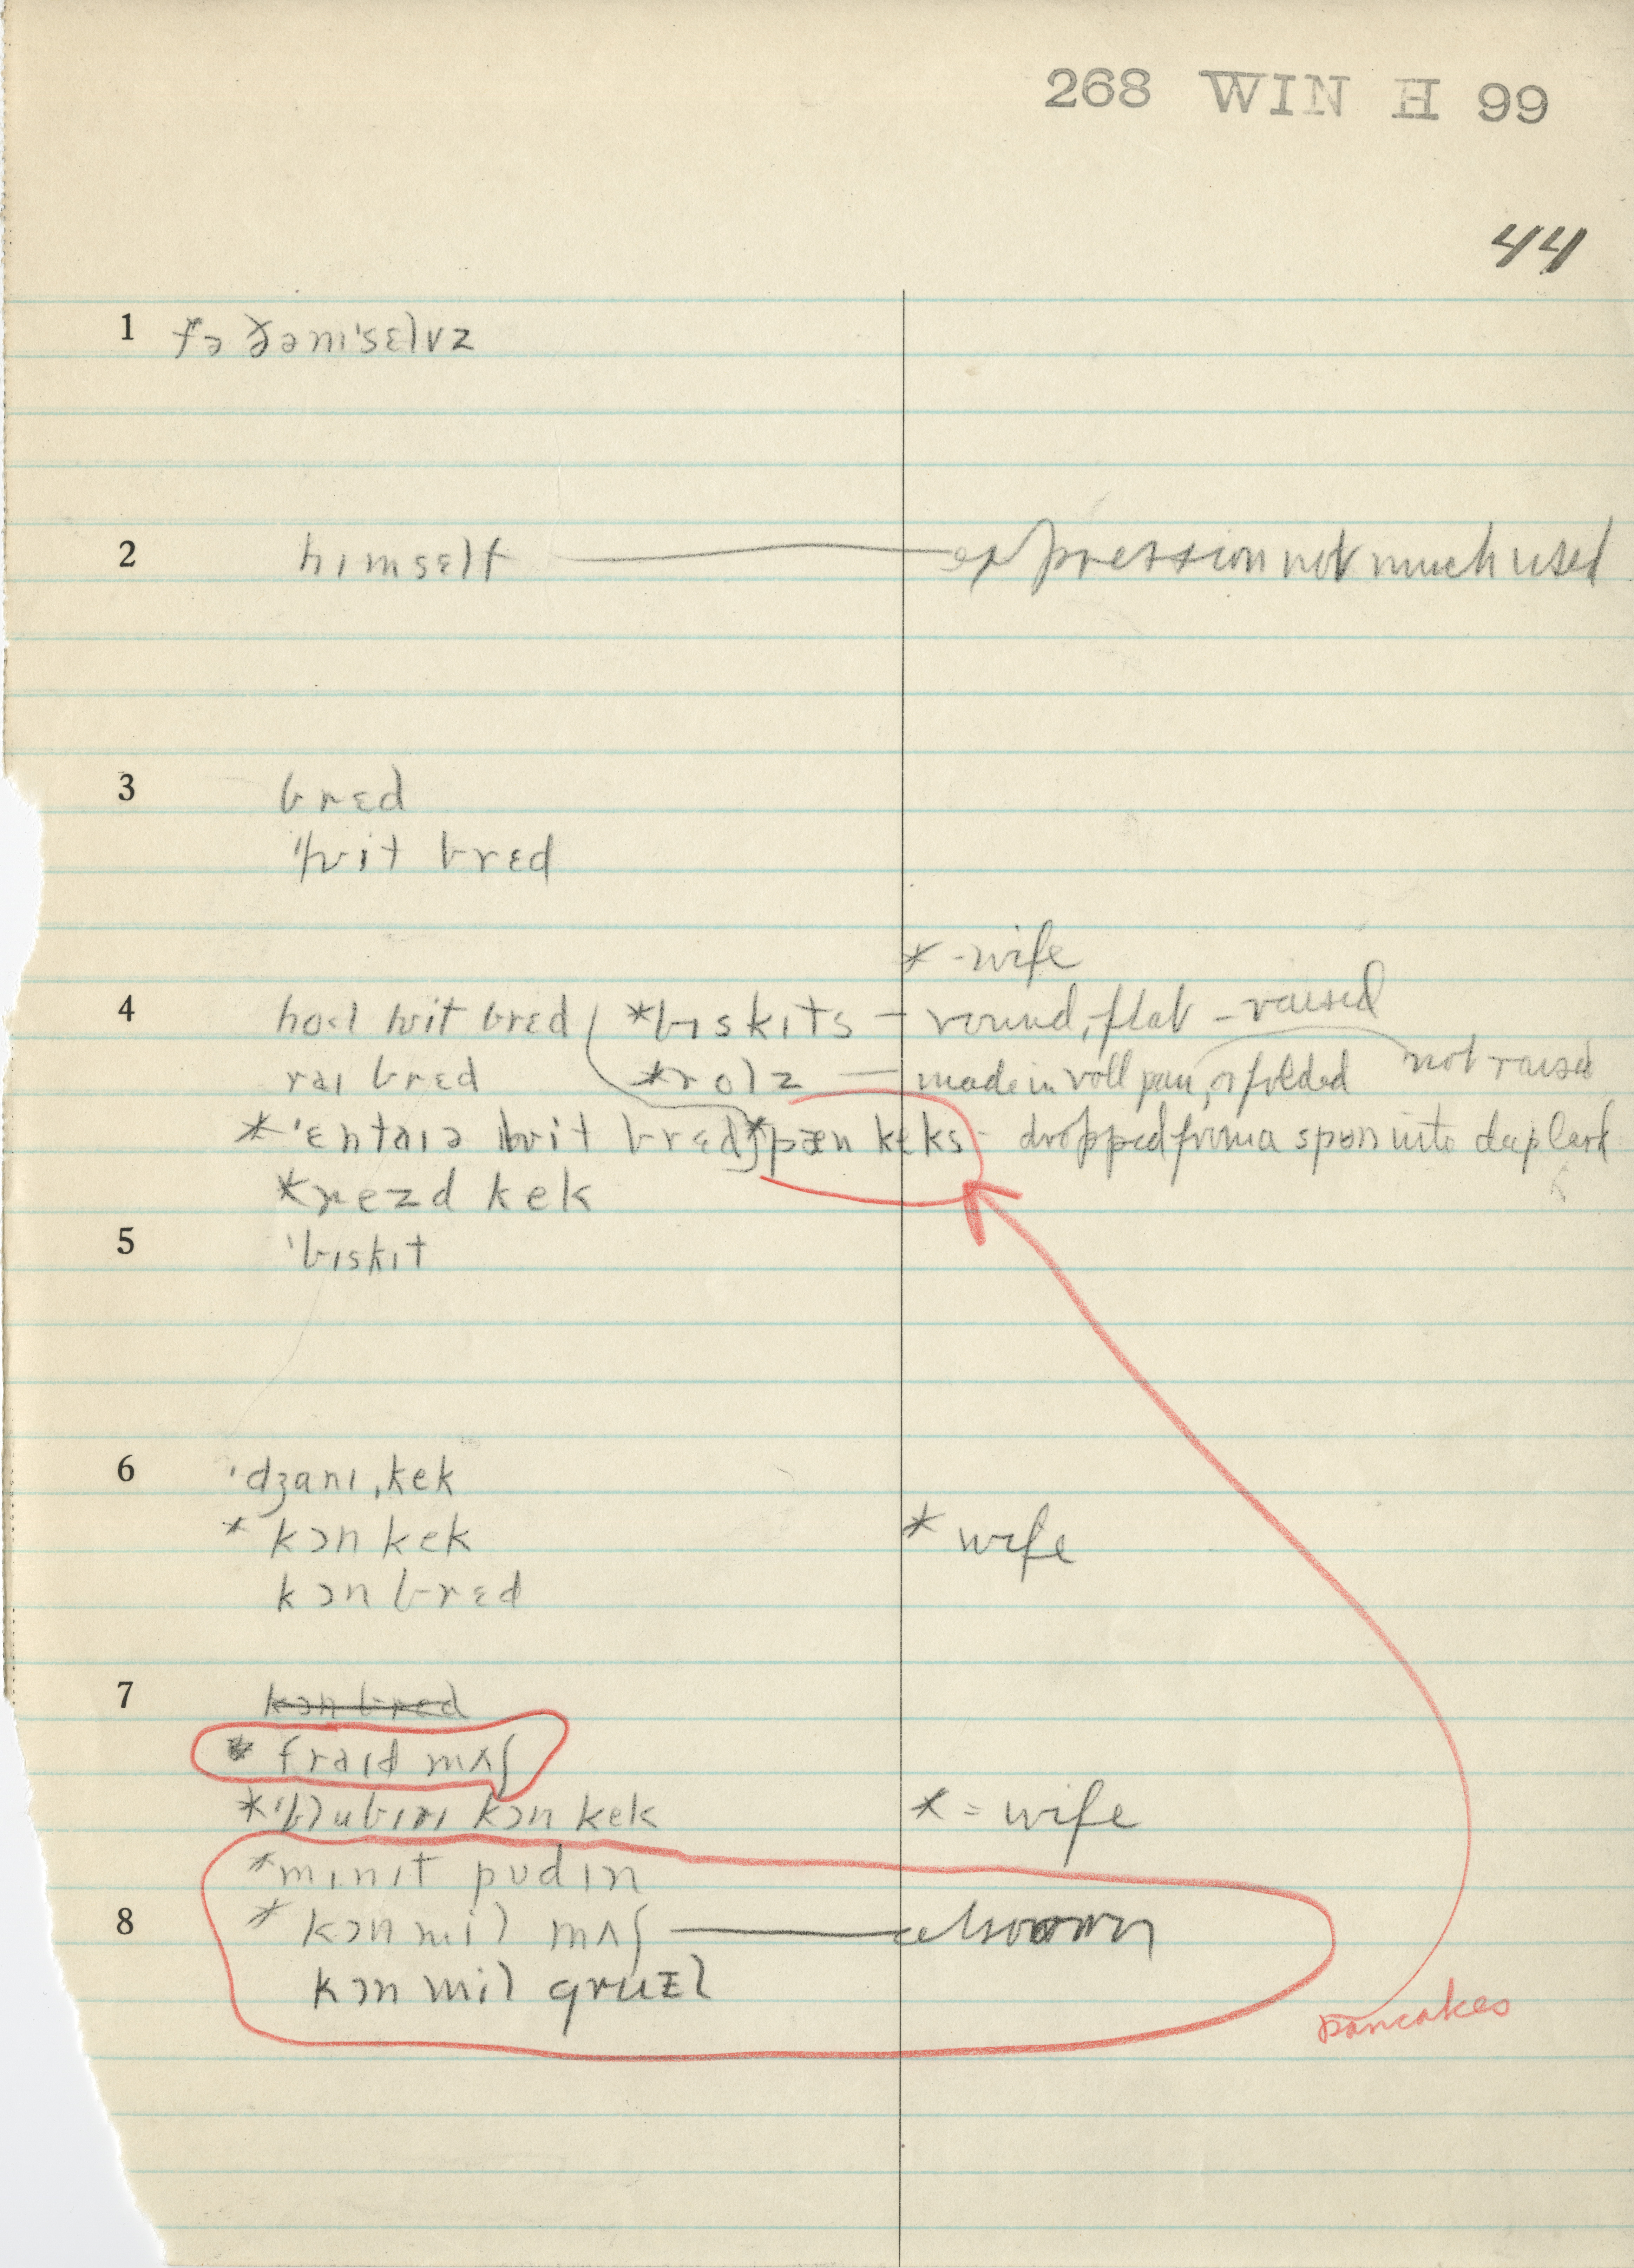 268 WIN H 99
44
1 fə ðəmˈsɛlvz
2 hɪmsɛlf — expression not much used
3 brɛd
ˈhwit brɛd
* - wife
4 hol hwit brɛd *bɪskɪts – round, flat – raised
raɪ brɛd *rolz — made in roll pan, or folded not raised
*ˈɛntaɪə hwit brɛd *pæn keks - dropped from a spoon into deep lard
*rezd kek
5 ˈbɪskɪt
6 ˈdʒanɪˌkek
* kɔn kek * wife
kɔn brɛd
7 kɔn brɛd
* fraɪd mʌʃ
kɔn kek * = wife
*mɪnɪt pʊdɪn
8 * kɔn mil mʌʃ —
kɔn mil gruəl
pancakes